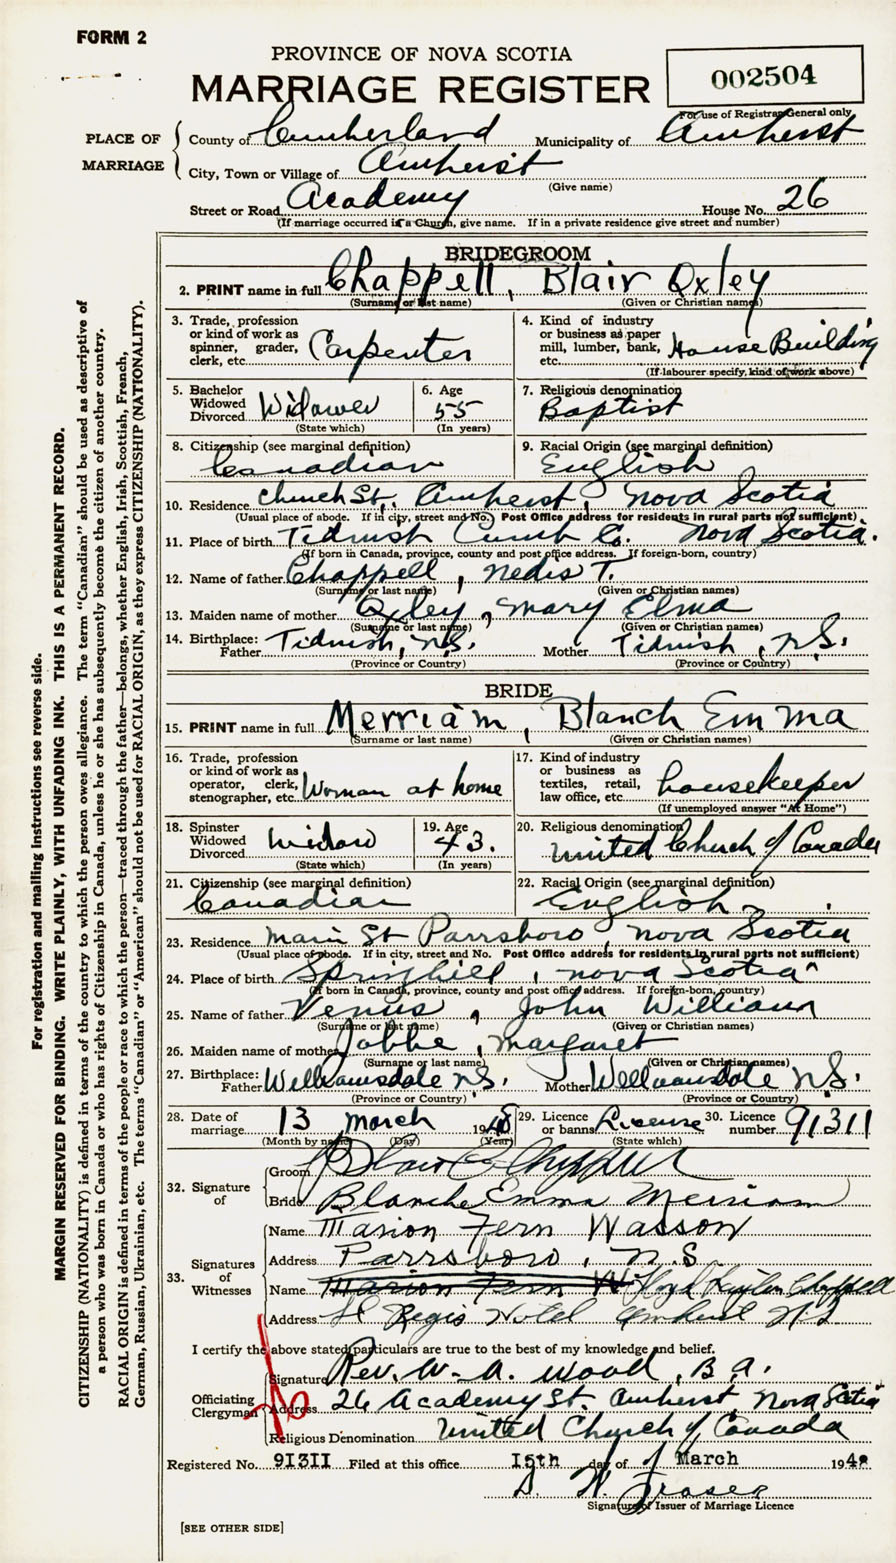 FORM 2
PROVINCE OF NOVA SCOTIA
MARRIAGE REGISTER
002504
For use of Registrar General only
PLACE OF MARRIAGE
County of Cumberland Municipality of Amherst
City, Town or Village of Amherst
(Give name)
Street or Road Academy House No. 26
(If marriage occurred in a Church, give name. If in a private residence give street and number)
BRIDEGROOM
2. PRINT name in full Chappell, Blair Oxley
(Surname or last name) (Given or Christian names)
3. Trade, profession or kind of work as spinner, grader, clerk, etc. Carpenter
4. Kind of industry or business as paper mill, lumber, bank, etc. House Building
(If labourer specify, kind of work above)
5. Bachelor Widowed Divorced Widower
(State which)
6. Age 55
(In years)
7. Religious denomination Baptist
8. Citizenship (see marginal definition) Canadian
9. Racial Origin (see marginal definition) English
10. Residence Church St., Amherst, Nova Scotia
(Usual place of abode. If in city, street and No. Post Office address for residents in rural parts not sufficient)
11. Place of birth Tidnish Cumb Co. Nova Scotia.
(If born in Canada, province, county and post office address. If foreign-born, country)
12. Name of father Chappell, Nedis T.
(Surname or last name) (Given or Christian names)
13. Maiden name of mother Oxley, Mary Elma
(Surname or last name) (Given or Christian names)
14. Birthplace: Father Tidnish, N.S. Mother Tidnish, N.S.
(Province or Country) (Province or Country)
BRIDE
15. PRINT name in full Merriam, Blanch Emma
(Surname or last name) (Given or Christian names)
16. Trade, profession or kind of work as operator, clerk, stenographer, etc. Woman at home
17. Kind of industry or business as textiles, retail, law office, etc. housekeeper
(If unemployed answer "At Home")
18. Spinster Widowed Divorced Widow
(State which)
19. Age 43.
(In years)
20. Religious denomination United Church of Canada
21. Citizenship (see marginal definition) Canadian
22. Racial Origin (see marginal definition) English
23. Residence Main St Parrsboro, Nova Scotia
(Usual place of abode. If in city, street and No. Post Office address for residents in rural parts not sufficient)
24. Place of birth Springhill, Nova Scotia
(If born in Canada, province, county and post office address. If foreign-born, country)
25. Name of father Venus, John William
(Surname or last name) (Given or Christian names)
26. Maiden name of mother Margaret
(Surname or last name) (Given or Christian names)
27. Birthplace: Father Williamsdale N.S. Mother Williamsdale N.S.
(Province or Country) (Province or Country)
28. Date of marriage 13 March 1948
(Month by name) (Day) (Year)
29. Licence or banns License
(State which)
30. Licence number 91311
32. Signature of
Groom Blair O Chappell
Bride Blanche Emma Merriam
33. Signatures of Witnesses
Name Marion Fern Wasson
Address Parrsboro, N.S
Name Marion Fern W Chappell
Address St Regis Hotel Amherst N S
I certify the above stated particulars are true to the best of my knowledge and belief.
Officiating Clergyman
Signature Rev. W. A. Wood, B.A.
Address 26 Academy St. Amherst, Nova Scotia
Religious Denomination United Church of Canada
Registered No. 91311 Filed at this office 15th day of March 194
Fraser
Signature of Issuer of Marriage Licence
[SEE OTHER SIDE]
For registration and mailing instructions see reverse side.
MARGIN RESERVED FOR BINDING. WRITE PLAINLY, WITH UNFADING INK. THIS IS A PERMANENT RECORD.
CITIZENSHIP (NATIONALITY) is defined in terms of the country to which the person owes allegiance. The term "Canadian" should be used as descriptive of
a person who was born in Canada or who has rights of Citizenship in Canada, unless he or she has subsequently become the citizen of another country.
RACIAL ORIGIN is defined in terms of the people or race to which the person—traced through the father—belongs, whether English, Irish, Scottish, French,
German, Russian, Ukrainian, etc. The terms "Canadian" or "American" should not be used for RACIAL ORIGIN, as they express CITIZENSHIP (NATIONALITY).